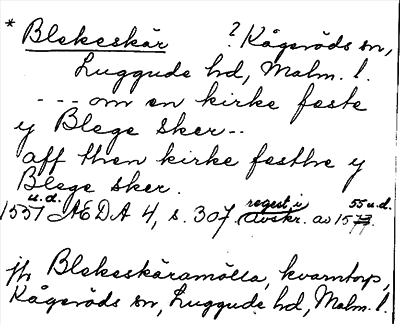 * Blekeskär ? Kågeröds sn,
Luggude hd, Malm. l.
--- om en kirke feste
y Blege Sker--
aff then kirke festhe y
Blege sker.
u.d. regest i 55 u.d.
1551 ÆDA 4, s. 307. avskr. av 1577.
jfr Blekeskäramölla, kvarntorp,
Kågeröds sn, Luggude hd, Malm. l.